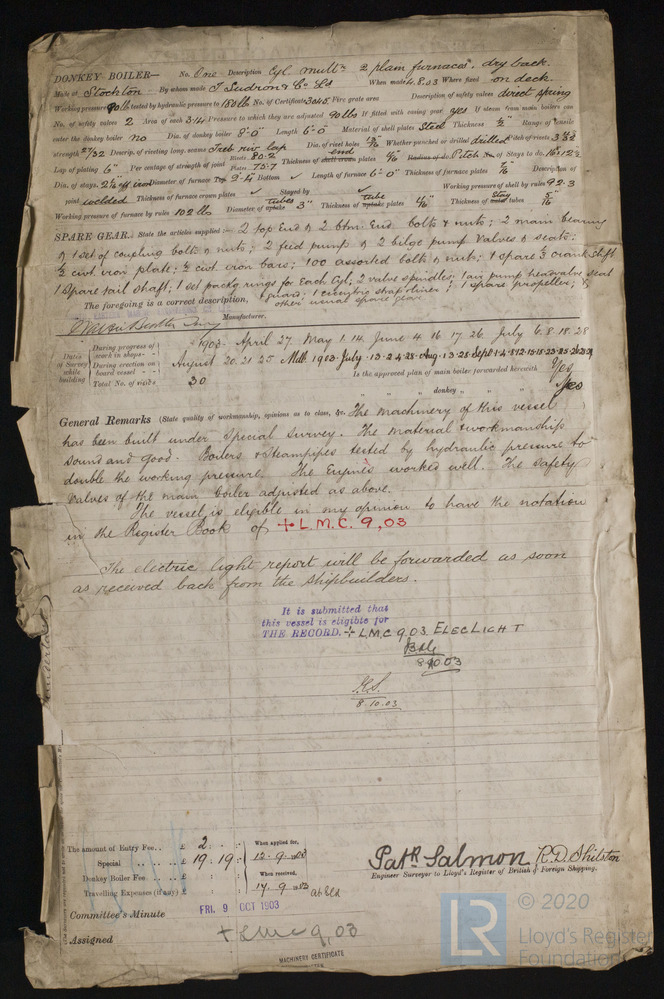 DONKEY BOILER— No. One Description Cyl. mult. 2 plain furnaces. dry back.
Made at Stockton By whom made T Sudron & Co Ld When made 4.8.03 Where fixed on deck.
Working pressure 90 lb tested by hydraulic pressure to 180 lbs No. of Certificate 3045 Fire grate area Description of safety valves direct spring
No. of safety valves 2 Area of each 3.14 Pressure to which they are adjusted 90 lbs If fitted with easing gear yes If steam from main boilers can
enter the donkey boiler no Dia. of donkey boiler 8'-0" Length 6'-0" Material of shell plates Steel Thickness Range of tensile
strength 27/32 Descrip. of riveting long. seams Treb riv lap Dia. of rivet holes Whether punched or drilled drilled Pitch of rivets
Lap of plating 6" Per centage of strength of joint Rivets 80.2 Plates 75.7 Thickness of end plates Pitch of Stays to do.
Dia. of stays. Diameter of furnace Top 2'-4" Bottom ✓ Length of furnace 6'-0" Thickness of furnace plates Description of
joint welded Thickness of furnace crown plates ✓ Stayed by ✓ Working pressure of shell by rules 92.3
Working pressure of furnace by rules 102 lbs Diameter of tubes 3" Thickness of tube plates Thickness of Stay tubes
SPARE GEAR. State the articles supplied:— 2 top End & 2 btm. End bolts & nuts; 2 main bearing
& 1 set of coupling bolts & nuts; 2 feed pump & 2 bilge pump valves & seats;
½ cwt iron plate; ½ cwt iron bars; 100 assorted bolts & nuts; 1 spare crank shaft
1 Spare tail shaft; 1 set packg rings for Each Cyl; 2 valve spindles; 1 air pump head valve seat
& guard; 1 eccentric strap; 1 spare propeller; &
other usual spare gear
The foregoing is a correct description,
Manufacturer.
Dates of Survey while building
During progress of work in shops-- 1903. April 27. May 1. 14. June 4. 16. 17. 26. July 6. 8. 18. 28
During erection on board vessel--- August 20. 21. 25 1903 July 13 Aug 13 28 Sept
Total No. of visits 30
Is the approved plan of main boiler forwarded herewith Yes
" " " donkey " " " Yes
General Remarks (State quality of workmanship, opinions as to class, &c. The machinery of this vessel
has been built under Special Survey. The material & workmanship
sound and good. Boilers & steampipes tested by hydraulic pressure to
double the working pressure. The Engines worked well. The safety
valves of the main boiler adjusted as above.
The vessel is eligible in my opinion to have the notation
in the Register Book of +L.M.C. 9,03
The electric light report will be forwarded as soon
as received back from the shipbuilders.
It is submitted that
this vessel is eligible for
THE RECORD. + L.M.C. 9.03. ELEC LIGHT
8.10.03
8.10.03
The amount of Entry Fee.. £ 2 : : When applied for,
Special £ 19 : 19 : 12. 9. 03
Donkey Boiler Fee £ : : When received,
Travelling Expenses (if any) £ : : 17. 9. 03
Patk Salmon R.D. Shilston
Engineer Surveyor to Lloyd's Register of British & Foreign Shipping.
Committee's Minute FRI. 9 OCT 1903
Assigned + LMC 9,03
MACHINERY CERTIFICATE
© 2020
LR
Lloyd's Register
Foundation